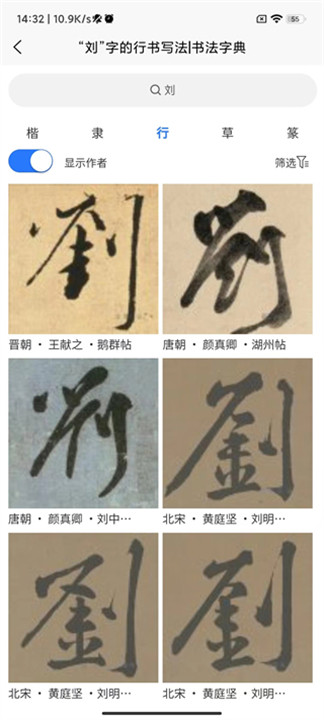 14:32 | 10.9K/s
55
“刘”字的行书写法|书法字典
刘
楷 隶 行 草 篆
显示作者 筛选
劉 劉
晋朝 · 王献之 · 鹅群帖 唐朝 · 颜真卿 · 湖州帖
劉 劉
唐朝 · 颜真卿 · 刘中··· 北宋 · 黄庭坚 · 刘明···
劉 劉
北宋 · 黄庭坚 · 刘明··· 北宋 · 黄庭坚 · 刘明···